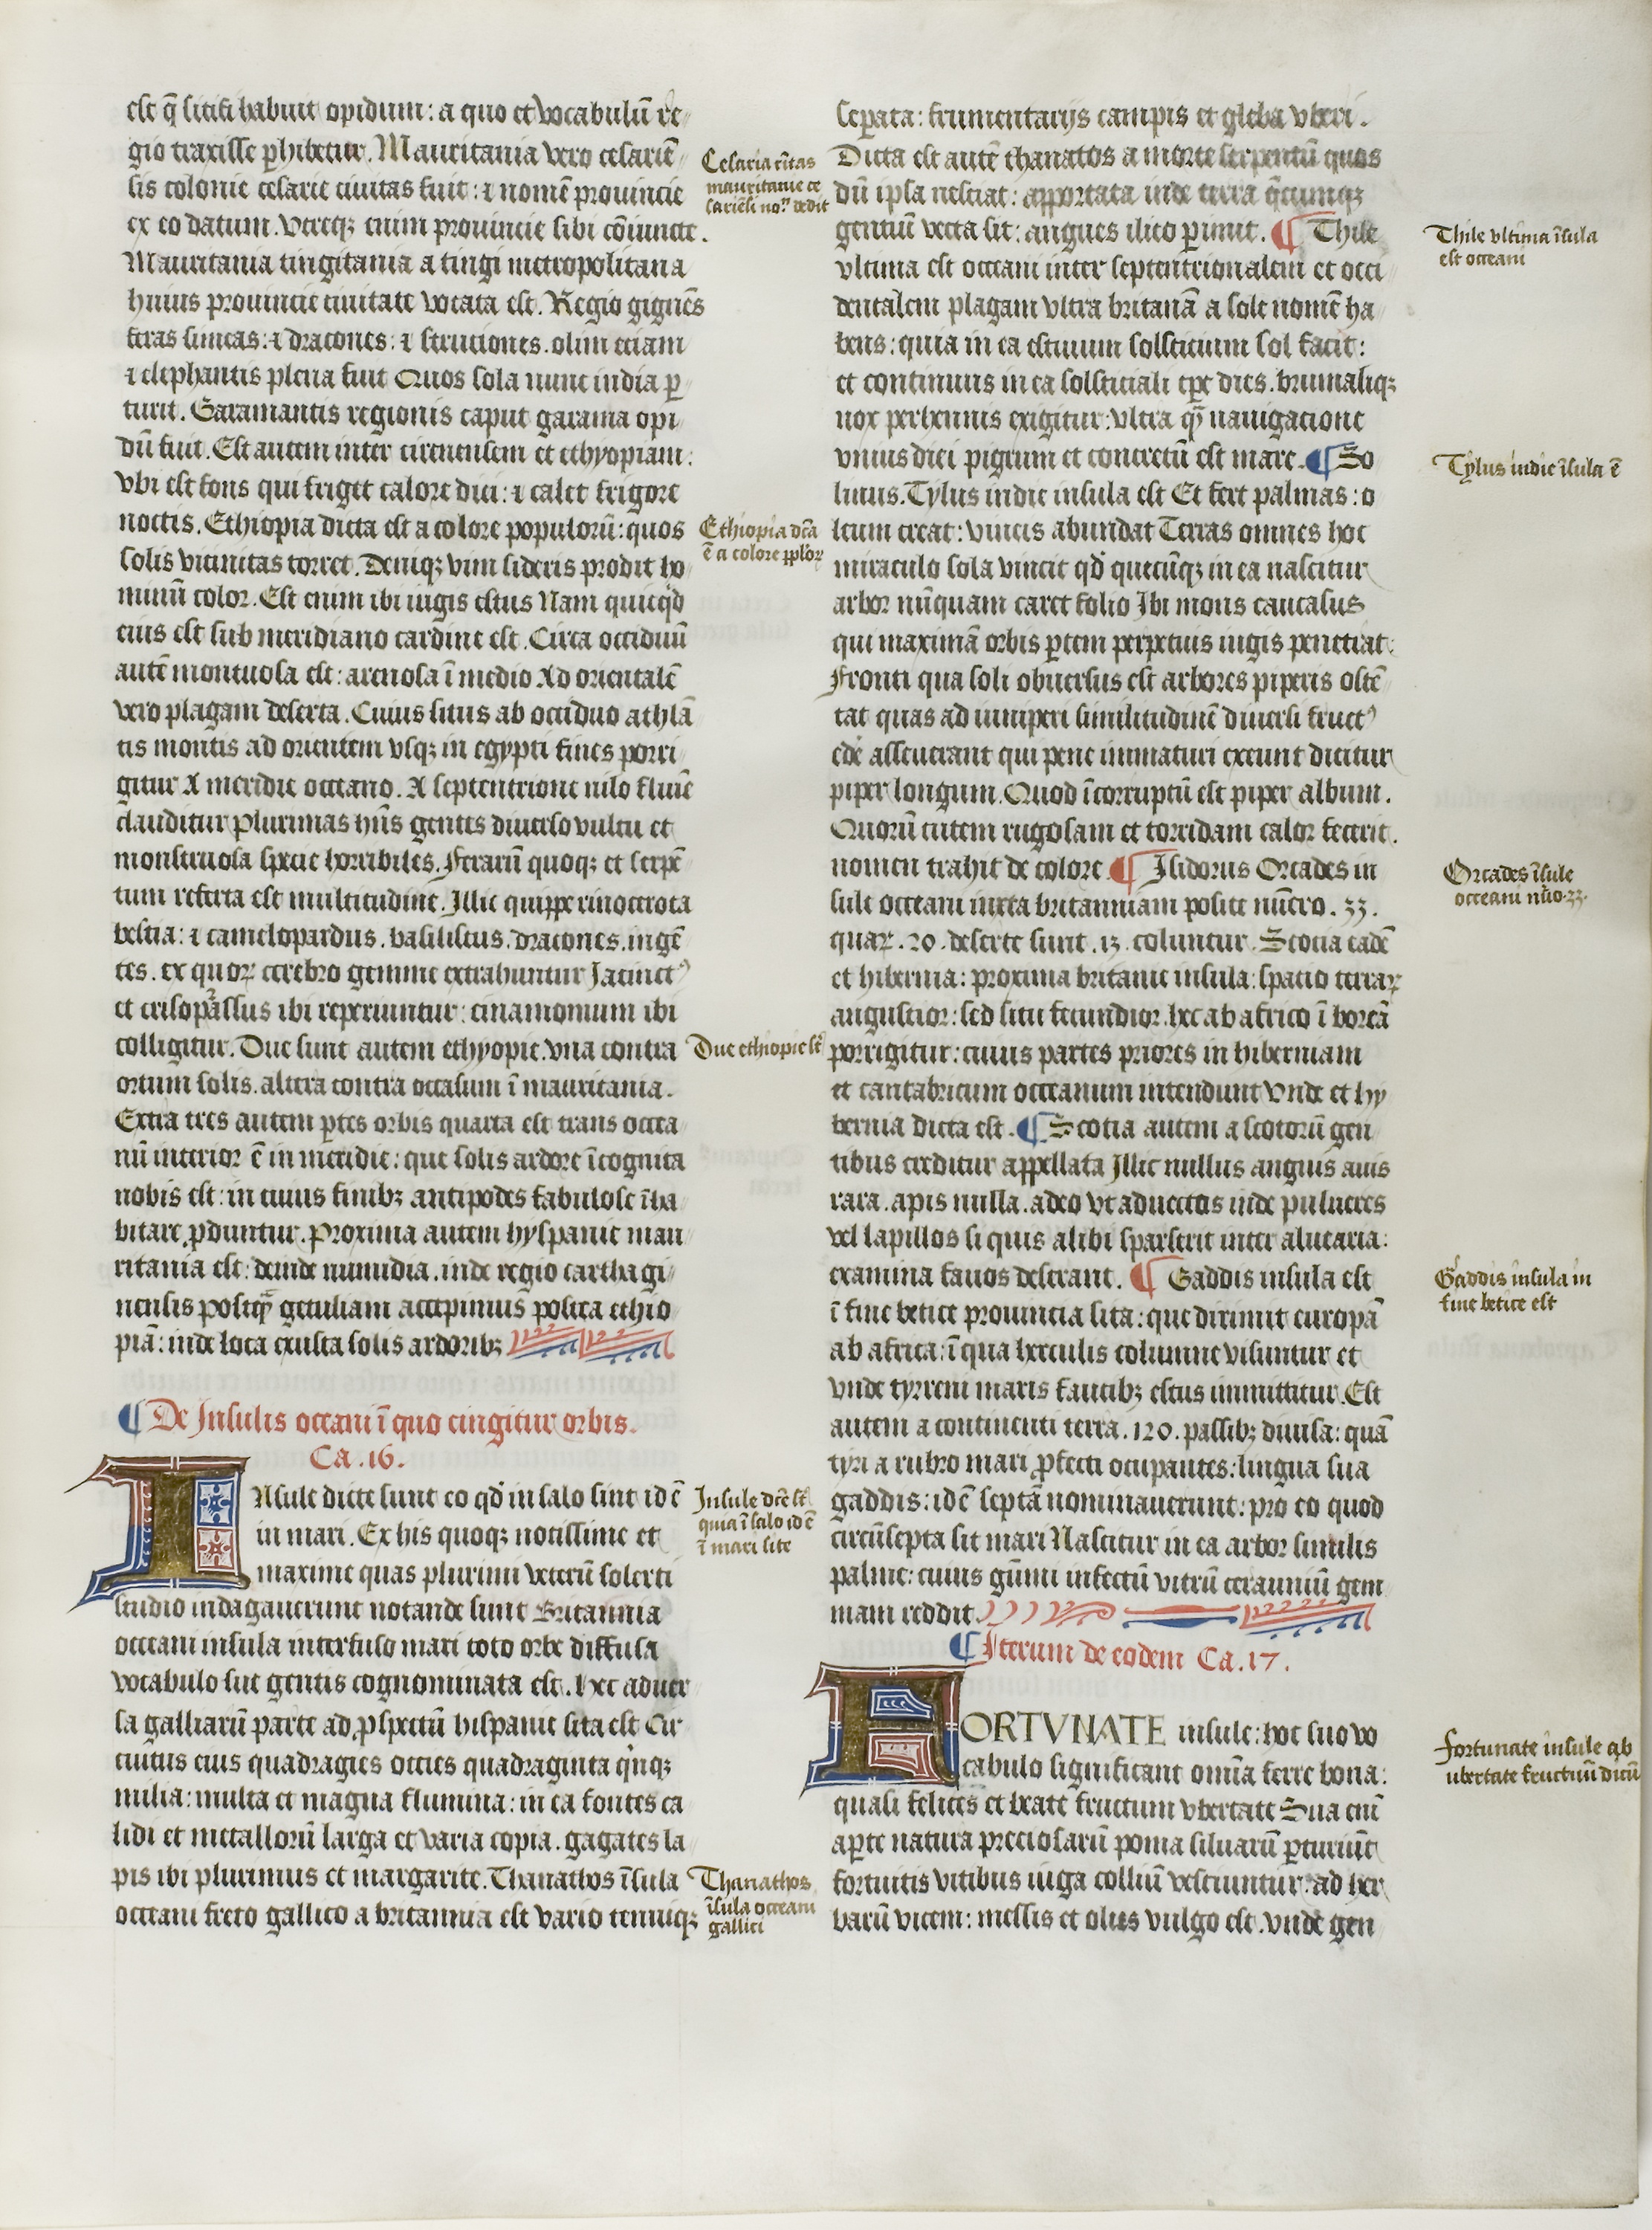 est q̄ sitifi habuit opidum: a quo et vocabulū re
gio traxisse ꝑhibetur. Mauritania vero cesariē
sis colonie cesarie ciuitas fuit: ⁊ nomē prouincie
ex eo datum. Vtreqꝫ enim prouincie sibi cōiuncte.
Mauritania tingitania a tingi metropolitana
huius prouincie ciuitate vocata est. Regio gignēs
feras simeas: ⁊ dracones: ⁊ strutiones. olim eciam
⁊ elephantis plena fuit Quos sola nunc india ꝑ
turit. Garamantis regionis caput garama opi
dū fuit. Est autem inter cirenensem et ethyopiam:
vbi est fons qui friget calore diei: ⁊ calet frigore
noctis. Ethiopia dicta est a colore populorū: quos
solis vicinitas torret. Deniqꝫ vim sideris prodit ho
minū color. Est enim ibi iugis estus Nam quicq̇d
eius est sub meridiano cardine est. Circa occiduū
autē montuosa est: arenosa ī medio Ad orientalē
vero plagam deserta. Cuius situs ab occiduo athlā
tis montis ad orientem vsqꝫ in egypti fines porri
gitur A meridie occeano. A septentrione nilo fluuīe
clauditur Plurimas hn̄s gentes diuerso vultu et
monstruosa specie horribiles. Ferarū quoqꝫ et serpē
tum referta est multitudine. Illic quippe rinocerota
bestia: ⁊ camelopardus. basiliscus. dracones. ingē
tes. ex quoꝝ cerebro gemme extrahuntur Jacinctꝰ
et crisopassus ibi reperiuntur: cinamomum ibi
colligitur. Due sunt autem ethyopie. vna contra
ortum solis. altera contra occasum ī mauritania.
Extra tres autem ꝑtes orbis quarta est trans occea
nū interior ē in meridie: que solis ardore īcognita
nobis est: in cuius finibꝫ antipodes fabulose īha
bitare ꝓduntur. Proxima autem hyspanie mau
ritania est: deinde numidia. inde regio carthagi
nensis postqꝫ̄ getuliam accepimus postea ethio
piā: inde loca exusta solis ardoribꝫ
¶ De Insulis occeani ī quo cingitur orbis.
Ca. 16.
INsule dicte sunt eo qd̓ in salo sint id ē
in mari. Ex his quoqꝫ notissime et
maxime quas plurimi veterū solerti
studio indagauerunt notande sunt Britannia
occeani insula interfuso mari toto orbe diffusa
vocabulo sue gentis cognominata est. Hec aduer
sa galliarū parte ad ꝓspectū hispanie sita est Cir
cuitus eius quadragies octies quadraginta qinqꝫ
milia: multa et magna flumina: in ea fontes ca
lidi et metallorū larga et varia copia. gagates la
pis ibi plurimus et margarite. Thanathos īsula
occeani freto gallico a britannia est vario tenuiqꝫ
Cesaria ciu̇tas
mauritanie ce
sariēsi no.ⁿ dedit
Ethiopia dc̄a
ē a colore pplōꝝ
Due ethiopie st̄
Insule dc̄e st̄
quia ī salo id ē
ī mari site
Thanathos
īsula occeani
gallici
seꝑata: frumentarijs campis et gleba vberi.
Dicta est autē thanatos a morte serpentū quos
dū ipsa nesciat: apportata inde terra q̄cumqꝫ
gentiū vecta sit: angues ilico ꝑimit. ¶ Thile
vltima est occeani inter septentrionalem et occi
dentalem plagam vltra britanā a sole nomē ha
bens: quia in ea estiuum solsticium sol facit:
et continuus in ea solsticiali tꝑe dies. brumaliqꝫ
nox perhennis exigitur: vltra qꝫ̄ nauigacione
vnius diei pigrum et concretū est mare. ¶ So
linus. Tylus indie insula est Et fert palmas: o
leum creat: vineis abundat Terras omnes hoc
miraculo sola vincit qd̓ quecūqꝫ in ea nascitur
arbor nūquam caret folio Ibi mons caucasus
qui maximā orbis ꝑtem perpetuis iugis penetrat:
Fronti qua soli obuersus est arbores piperis ostē
tat quas ad iuniperi similitudinē diuersi fructꝰ
edē asseuerant qui pene immaturi exeunt dicitur
piper longum. Quod īcorruptū est piper album.
Quorū cutem rugosam et torridam calor fecerit.
nomen trahit de colore. ¶ Isidorus Orcades in
sule occeani iuxta britanniam posite nūero. 33.
quaꝝ. 20. deserte sunt. 13. coluntur. Scotia eadē
et hibernia: proxima britanie insula: spacio terraꝝ
angustior: sed situ fecundior. hec ab africo ī boreā
porrigitur: cuius partes priores in hiberniam
et cantabricum occeanum intendunt Vnde et hy
bernia dicta est. ¶ Scotia autem a scotorū gen
tibus creditur appellata Illic nullus anguis auis
rara. apis nulla. adeo vt aduectos inde pulueres
vel lapillos si quis alibi sparserit inter aluearia:
examina fauos deserant. ¶ Gaddis insula est
ī fine betice prouincia sita: que dirimit europā
ab africa: ī qua herculis columne visuntur et
vnde tyrreni maris faucibꝫ estus immittitur. Est
autem a continenti terra. 120. passibꝫ diuisa: quā
tyri a rubro mari ꝓfecti ocupantes: lingua sua
gaddis: id ē septā nominauerunt: pro eo quod
circūsepta sit mari Nascitur in ea arbor similis
palme: cuius gūmi infectū vitrū cerauniū gem
mam reddit.
¶ Iterum de eodem Ca. 17.
FORTVNATE insule: hoc suo vo
cabulo significant omīa ferre bona:
quasi felices et beate fructuum vbertate Sua eni
aꝑte natura preciosarū poma siluarū ꝑturiūt
fortuitis vitibus iuga colliū vestiuntur: ad her
barū vicem: messis et olus vulgo est. vnde gen
Thile vltima īsula
est occeani
Tylus indie īsula ē
Orcades īsule
occeani nūo. 33.
Gaddis insula in
fine betice est
Fortunate insule ab
ubertate fructuū dicūt